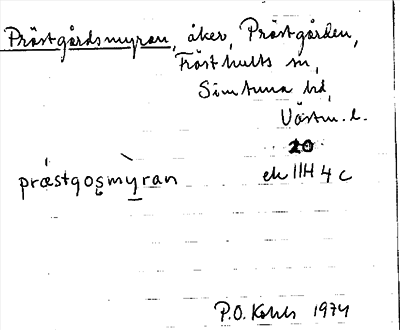 Prästgårdsmyran, åker, Prästgården,
Frösthults sn,
Simtuna hd,
Västm. l.
20
præ̀stgos̨mỳ̱ran
ek 11H 4 c
P.O. 1974